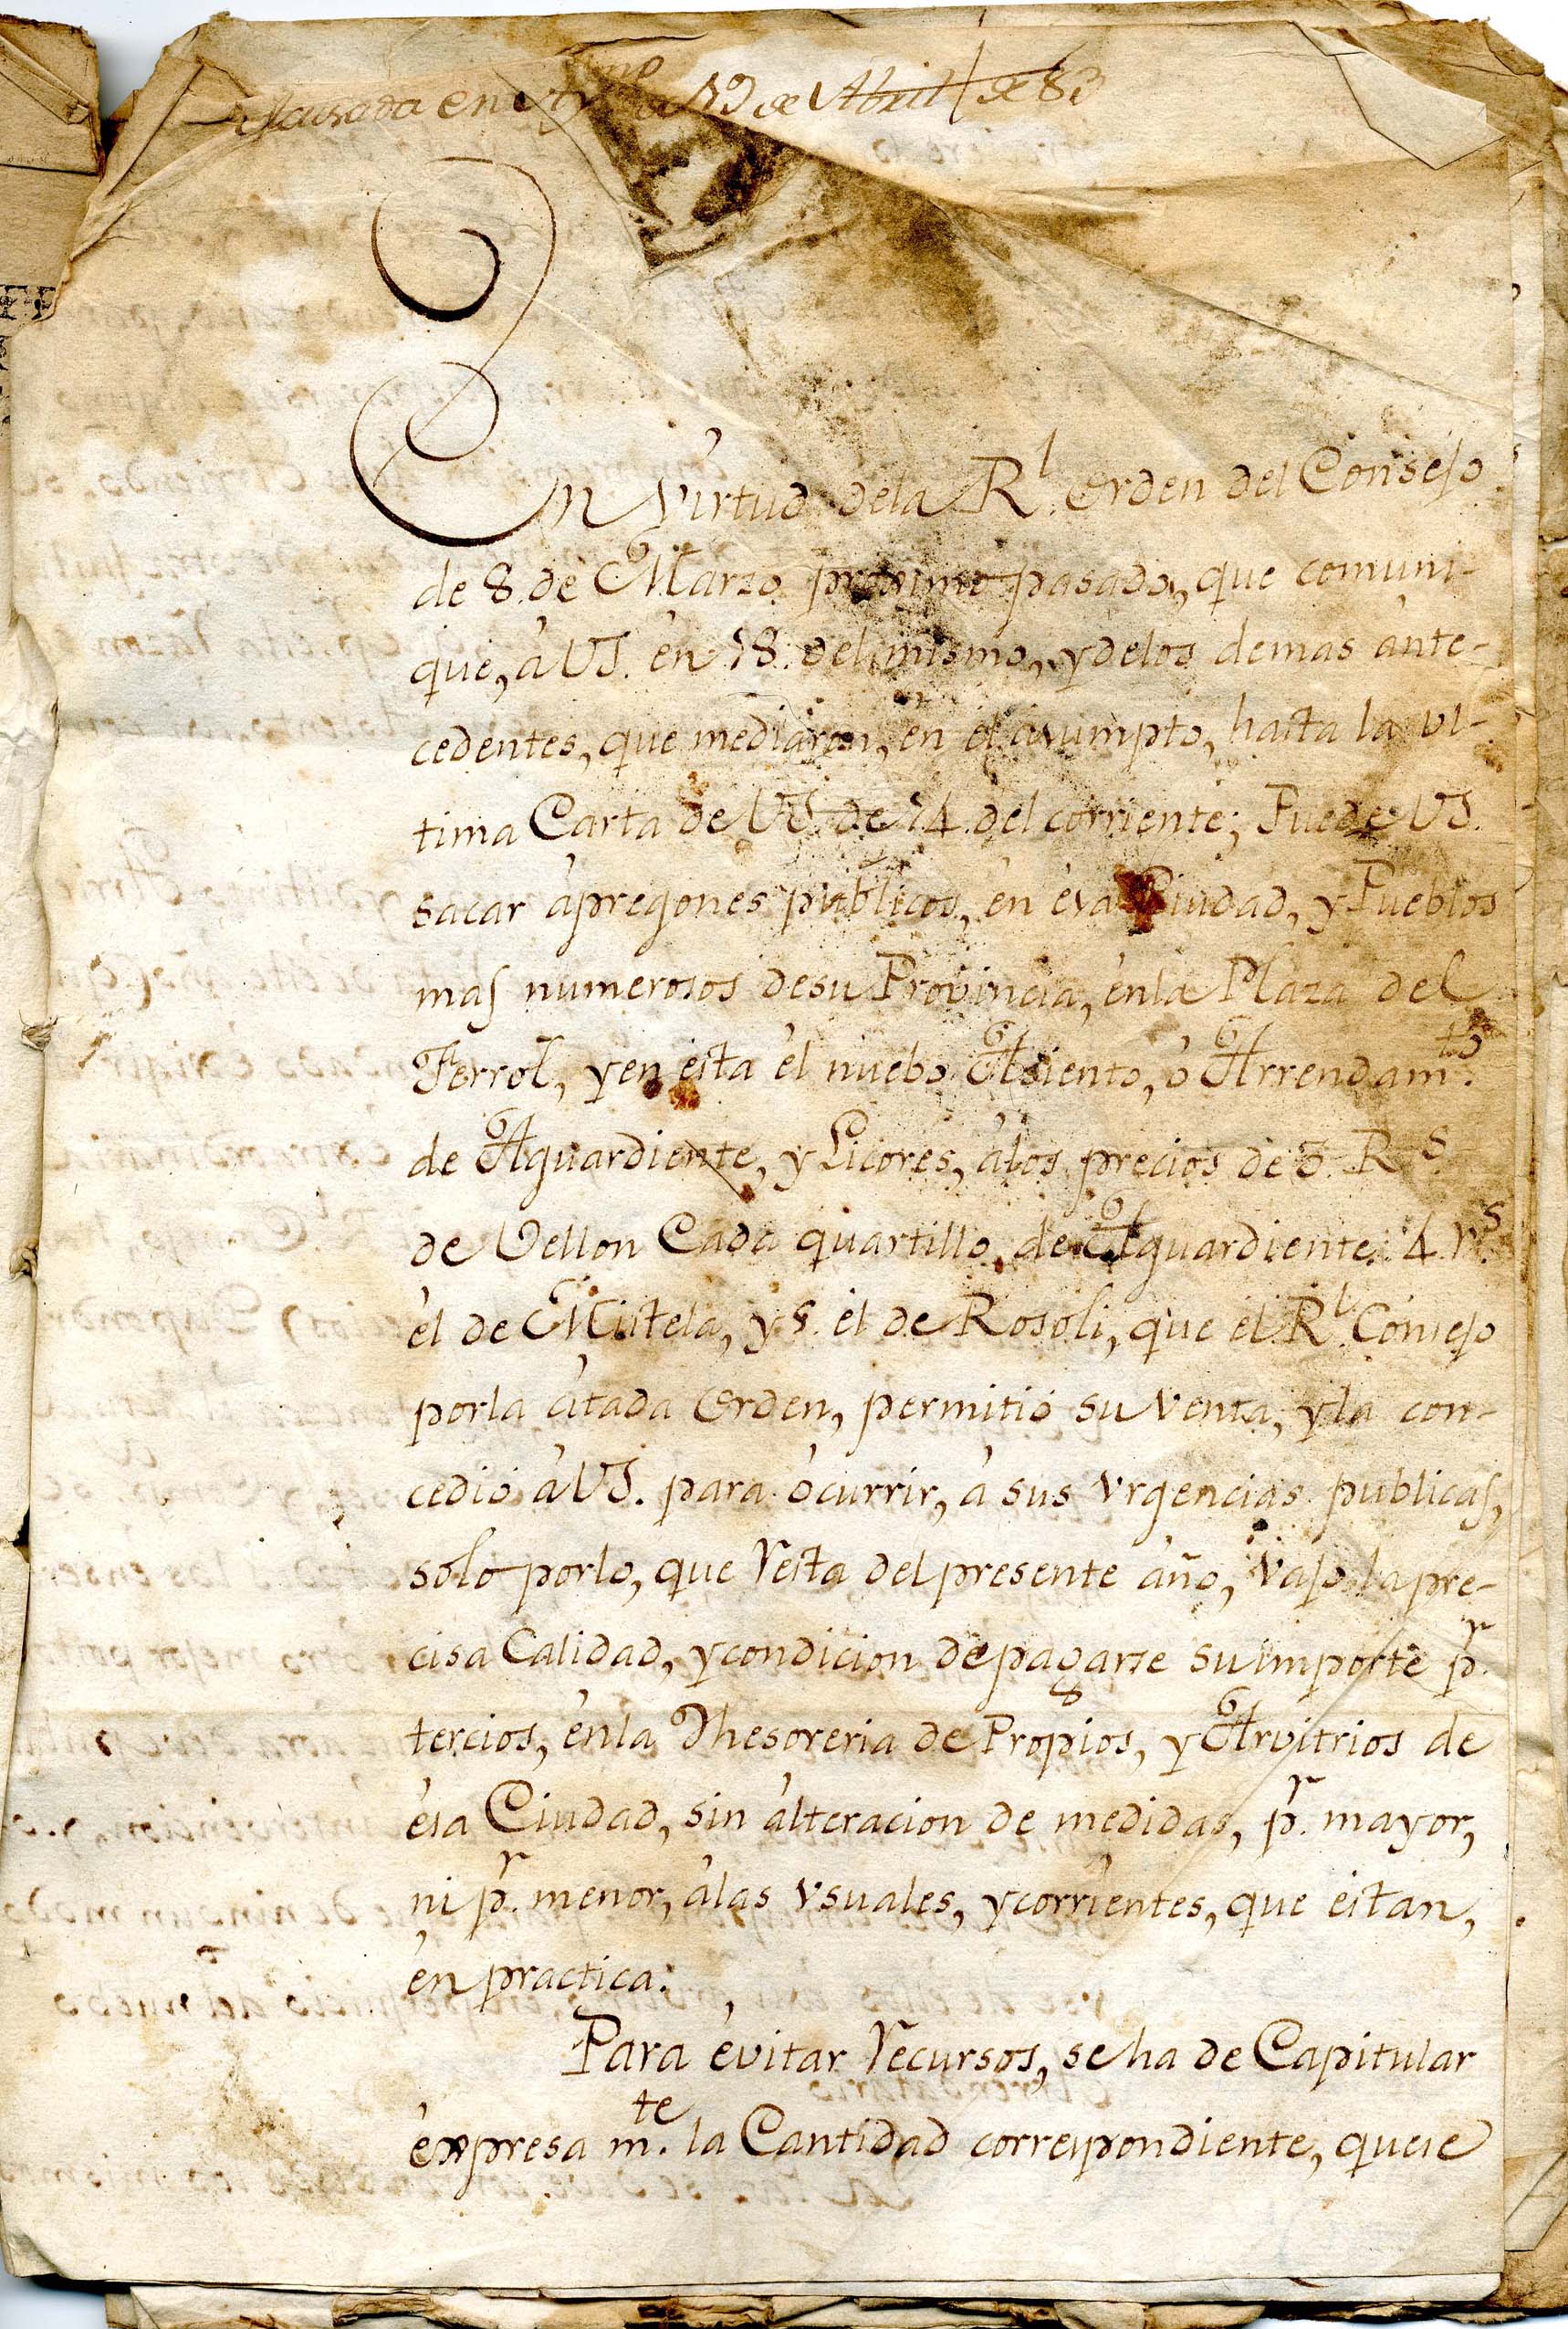 en Ay.mo de 19 de Abril de 83
En virtud dela Rl. Orden del Consejo
de 8. de Marzo proximo pasado, que comuni-
que, à VS. èn 18. del mismo, y delos demas ànte-
cedentes, que mediaron, èn èl àsumpto, hasta la ul-
tima Carta de VS. de 14. del corriente; Puede VS.
sacar àpregones publicos, èn èsa Ciudad, y Pueblos
mas numerosos desu Provincia, ènla Plaza del
Ferrol, y en èsta èl nuebo Asiento, ò Arrendam.to
de Aguardiente, y Licores, àlos precios de 3. R.s
de Vellon Cada quartillo, de Aguardiente: 4. r.s
èl de Mistela, y 5. èl de Rosoli, que èl Rl. Consejo
porla citada Orden, permitió su venta, y la con-
cedió àVS. para òcurrir, à sus vrgencias publicas,
sólo porlo, que resta del presente àño, vajo la pre-
cisa Calidad, y condicion de pagarse su importe p.r
tercios, ènla Thesoreria de Propios, y Arvitrios de
èsa Ciudad, sin àlteracion de medidas, p.r mayor,
ni p.r menor, àlas vsuales, y corrientes, que èstan,
èn practica.
Para èvitar recursos, se ha de Capitular
èxpresa m.te la Cantidad correspondiente, quese